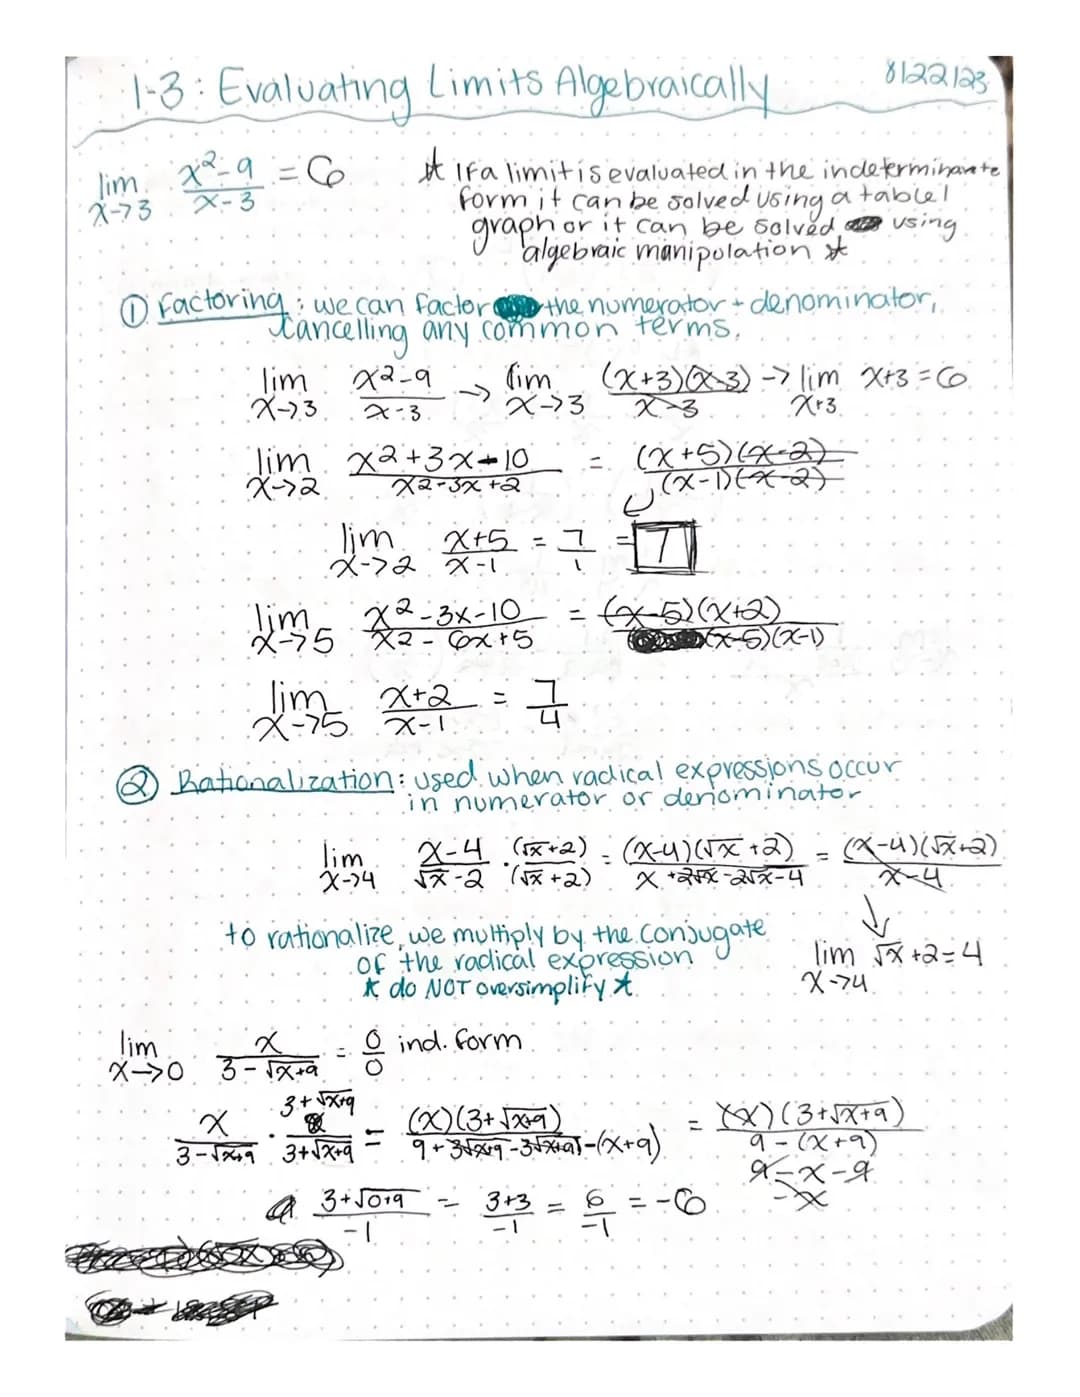 1-3: Evaluating Limits Algebraically 8/22/23
lim x→3 x²-9/x-3 = 6
★ If a limit is evaluated in the indeterminante
form it can be solved using a table/
graph or it can be solved using
algebraic manipulation ★
① Factoring: we can factor the numerator + denominator,
cancelling any common terms.
lim x→3 x²-9/x-3 → lim x→3 (x+3)(x-3)/x-3 → lim x→3 x+3 = 6
lim x→2 x²+3x-10/x²-3x+2 = (x+5)(x-2)/(x-1)(x-2)
lim x→2 x+5/x-1 = 7/1 = 7
lim x→5 x²-3x-10/x²-6x+5 = (x-5)(x+2)/(x-5)(x-1)
lim x→5 x+2/x-1 = 7/4
② Rationalization: used when radical expressions occur
in numerator or denominator
lim x→4 x-4/√x-2 · (√x+2)/(√x+2) = (x-4)(√x+2)/x+2√x-2√x-4 = (x-4)(√x+2)/x-4
to rationalize, we multiply by the conjugate
of the radical expression
★ do NOT oversimplify ★
lim x→4 √x+2=4
lim x→0 x/3-√x+9 = 0/0 ind. form
x/3-√x+9 · 3+√x+9/3+√x+9 = (x)(3+√x+9)/9+3√x+9-3√x+9-(x+9) = (x)(3+√x+9)/9-(x+9)
9-x-9
-x
3+√0+9/-1 = 3+3/-1 = 6/-1 = -6